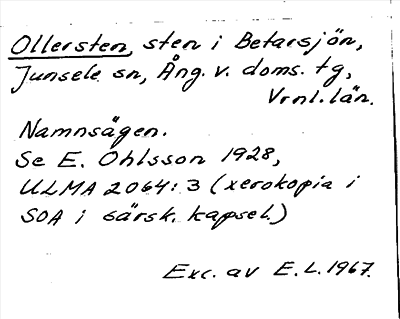 Ollersten, sten i Betarsjön,
Junsele sn, Ång. v. doms. tg,
Vrnl. län.
Namnsägen.
Se E. Ohlsson 1928,
ULMA 2064:3 (xerokopia i
SOA i särsk. kapsel.)
Exc. av E.L. 1967.